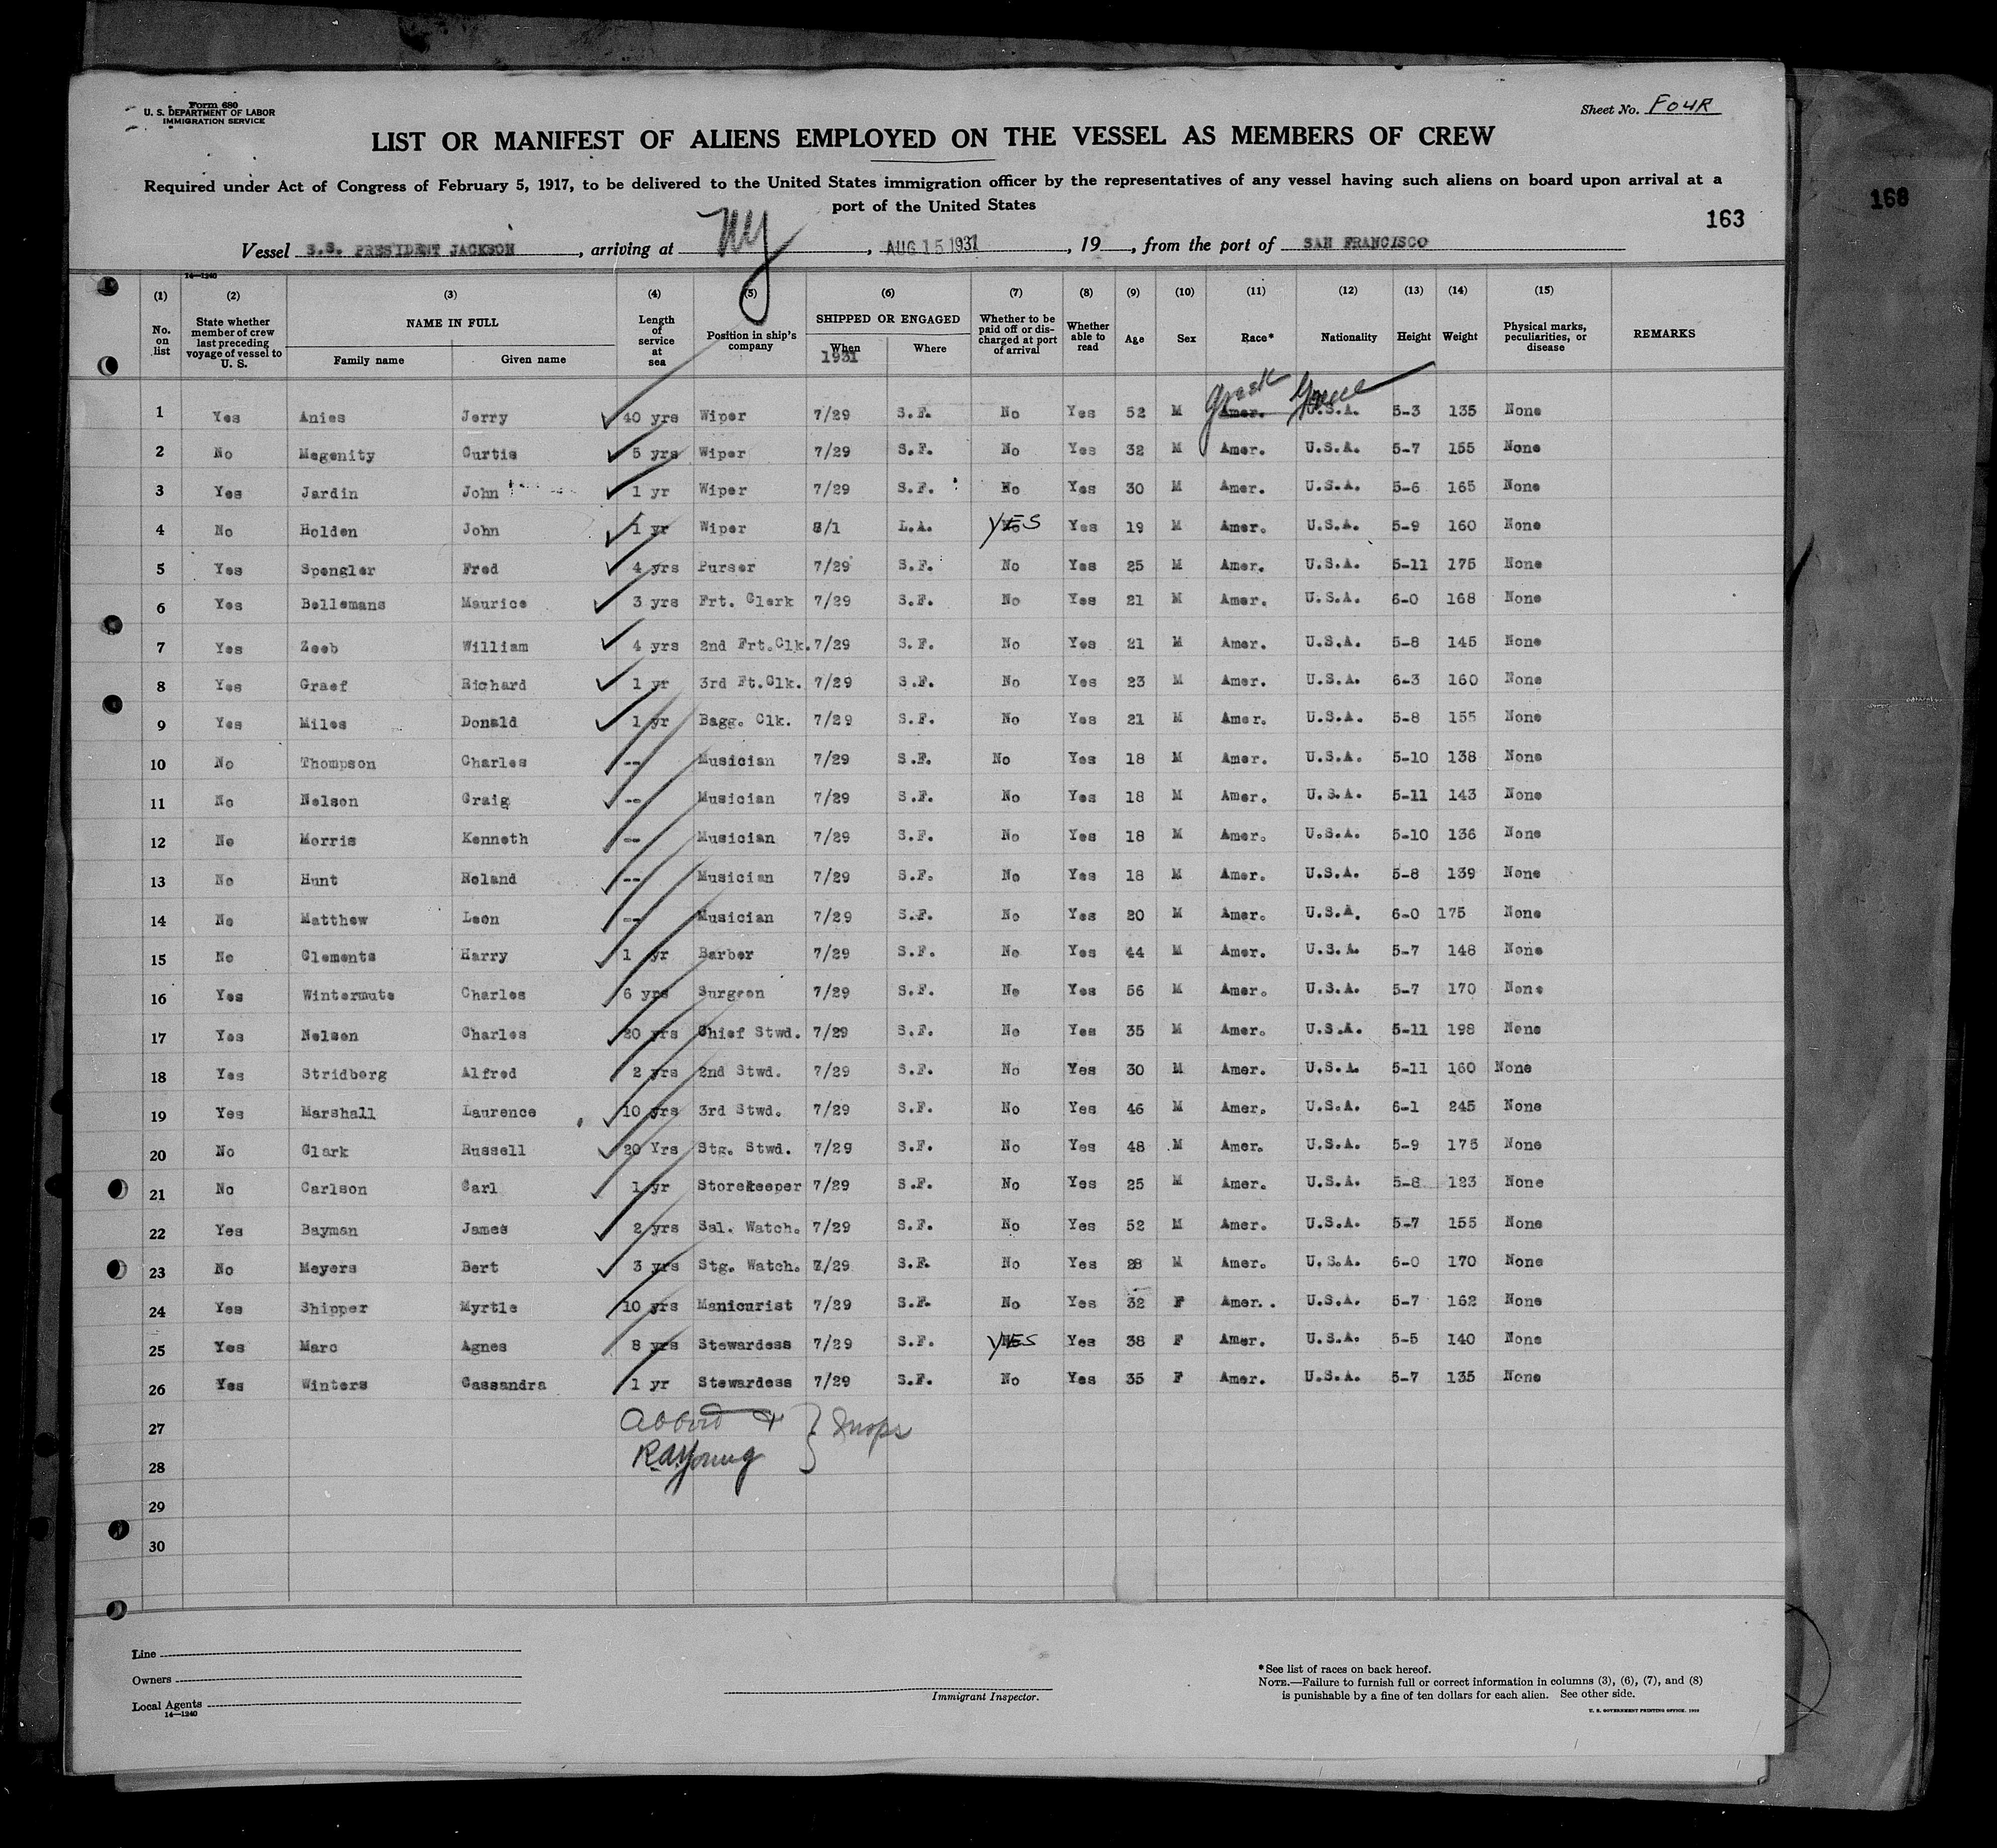 Form 680
U. S. DEPARTMENT OF LABOR
IMMIGRATION SERVICE
Sheet No. FOUR
LIST OR MANIFEST OF ALIENS EMPLOYED ON THE VESSEL AS MEMBERS OF CREW
Required under Act of Congress of February 5, 1917, to be delivered to the United States immigration officer by the representatives of any vessel having such aliens on board upon arrival at a
port of the United States
163
168
Vessel S.S. PRESIDENT JACKSON, arriving at NY, AUG 15 1931, 19, from the port of SAN FRANCISCO
14—1240
(1) No. on list (2) State whether member of crew last preceding voyage of vessel to U. S. (3) NAME IN FULL Family name Given name (4) Length of service at sea (5) Position in ship's company (6) SHIPPED OR ENGAGED When 1931 Where (7) Whether to be paid off or discharged at port of arrival (8) Whether able to read (9) Age (10) Sex (11) Race* (12) Nationality (13) Height (14) Weight (15) Physical marks, peculiarities, or disease REMARKS
Greek Greece
1 Yes Anies Jerry 40 yrs Wiper 7/29 S.F. No Yes 52 M Amer. U.S.A. 5-3 135 None
2 No Megenity Curtis 5 yrs Wiper 7/29 S.F. No Yes 32 M Amer. U.S.A. 5-7 155 None
3 Yes Jardin John 1 yr Wiper 7/29 S.F. No Yes 30 M Amer. U.S.A. 5-6 165 None
4 No Holden John 1 yr Wiper 8/1 L.A. No YES Yes 19 M Amer. U.S.A. 5-9 160 None
5 Yes Spengler Fred 4 yrs Purser 7/29 S.F. No Yes 25 M Amer. U.S.A. 5-11 175 None
6 Yes Bellemans Maurice 3 yrs Frt. Clerk 7/29 S.F. No Yes 21 M Amer. U.S.A. 6-0 168 None
7 Yes Zeeb William 4 yrs 2nd Frt.Clk. 7/29 S.F. No Yes 21 M Amer. U.S.A. 5-8 145 None
8 Yes Graef Richard 1 yr 3rd Ft.Clk. 7/29 S.F. No Yes 23 M Amer. U.S.A. 6-3 160 None
9 Yes Miles Donald 1 yr Bagg. Clk. 7/29 S.F. No Yes 21 M Amer. U.S.A. 5-8 155 None
10 No Thompson Charles -- Musician 7/29 S.F. No Yes 18 M Amer. U.S.A. 5-10 138 None
11 No Nelson Craig -- Musician 7/29 S.F. No Yes 18 M Amer. U.S.A. 5-11 143 None
12 No Morris Kenneth -- Musician 7/29 S.F. No Yes 18 M Amer. U.S.A. 5-10 136 None
13 No Hunt Roland -- Musician 7/29 S.F. No Yes 18 M Amer. U.S.A. 5-8 139 None
14 No Matthew Leon -- Musician 7/29 S.F. No Yes 20 M Amer. U.S.A. 6-0 175 None
15 No Clements Harry 1 yr Barber 7/29 S.F. No Yes 44 M Amer. U.S.A 5-7 148 None
16 Yes Wintermute Charles 6 yrs Surgeon 7/29 S.F. No Yes 56 M Amer. U.S.A. 5-7 170 None
17 Yes Nelson Charles 20 yrs Chief Stwd. 7/29 S.F. No Yes 35 M Amer. U.S.A. 5-11 198 None
18 Yes Stridberg Alfred 2 yrs 2nd Stwd. 7/29 S.F. No Yes 30 M Amer. U.S.A. 5-11 160 None
19 Yes Marshall Laurence 10 yrs 3rd Stwd. 7/29 S.F. No Yes 46 M Amer. U.S.A. 6-1 245 None
20 No Clark Russell 20 Yrs Stg. Stwd. 7/29 S.F. No Yes 48 M Amer. U.S.A. 5-9 175 None
21 No Carlson Carl 1 yr Storekeeper 7/29 S.F. No Yes 25 M Amer. U.S.A. 5-8 123 None
22 Yes Bayman James 2 yrs Sal. Watch. 7/29 S.F. No Yes 52 M Amer. U.S.A. 5-7 155 None
23 No Meyers Bert 3 yrs Stg. Watch. 7/29 S.F. No Yes 28 M Amer. U.S.A. 6-0 170 None
24 Yes Shipper Myrtle 10 yrs Manicurist 7/29 S.F. No Yes 32 F Amer. U.S.A. 5-7 162 None
25 Yes Marc Agnes 8 yrs Stewardess 7/29 S.F. YES Yes 38 F Amer. U.S.A. 5-5 140 None
26 Yes Winters Cassandra 1 yr Stewardess 7/29 S.F. No Yes 35 F Amer. U.S.A. 5-7 135 None
27 Abbott + } Insps
28 R.A. Young
29
30
Line
Owners
Local Agents
14—1240
Immigrant Inspector.
*See list of races on back hereof.
NOTE.—Failure to furnish full or correct information in columns (3), (6), (7), and (8)
is punishable by a fine of ten dollars for each alien. See other side.
U. S. GOVERNMENT PRINTING OFFICE. 1929